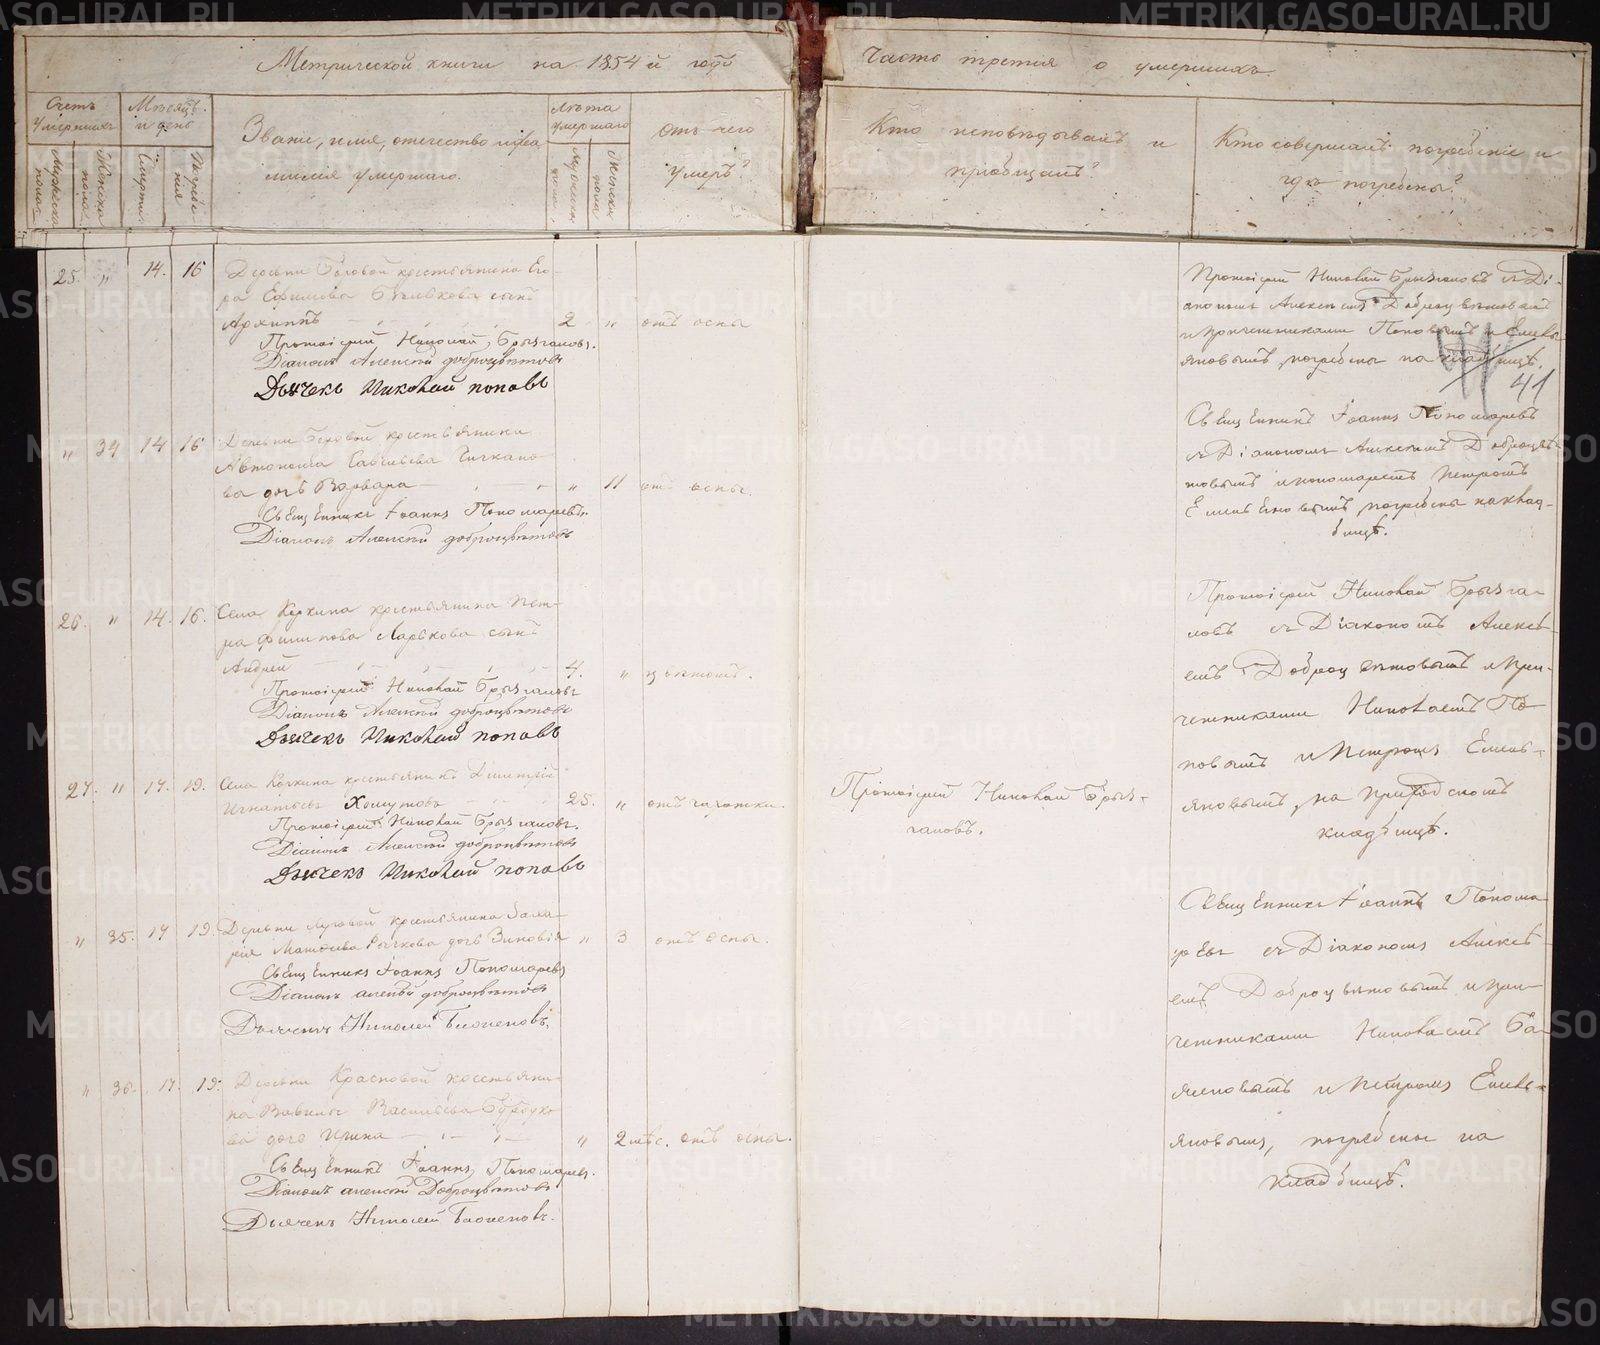 Метрической книги на 1854й годъ
Часть третія о умершихъ.
Счетъ умершихъ
Мѣсяцъ и день
Званіе, имя, отчество и фа-
милія умершаго.
Лѣта умершаго
Отъ чего
умеръ?
Кто исповѣдывалъ и
пріобщалъ?
Кто совершалъ погребеніе и
гдѣ погребены?
Мужеска пола
Женска пола
Смерти
Погребенія
Мужеска пола
Женска пола
25. " 14. 16 Деревни крестьянина Его-
ра Ефимова сынъ
Архиппъ 2 " отъ оспы
Протоіерей Николай Брызгаловъ.
Діаконъ Алексѣй Доброцвѣтовъ
Дьячекъ Николай Поповъ
Протоіерей Николай Брызгаловъ съ Ді-
акономъ Алексѣемъ Доброцвѣтовымъ
и причетниками Поповымъ и Емель-
яновымъ, погребены на кладбищѣ.
41
" 34 14 16 Деревни крестьянина
Автонома Савельева
ва дочь Варвара " 11 отъ оспы.
Священникъ Іоаннъ Пономаревъ.
Діаконъ Алексѣй Доброцвѣтовъ
Священникъ Іоаннъ Пономаревъ
съ Діакономъ Алексѣемъ Доброцвѣ-
товымъ и пономаремъ Петромъ
Емельяновымъ, погребена на клад-
бищѣ.
26. " 14. 16. Села крестьянина Пет-
ра Филипова Ларькова сынъ
Андрей 4. "
Протоіерей Николай Брызгаловъ
Діаконъ Алексѣй Доброцвѣтовъ
Дьячекъ Николай Поповъ
Протоіерей Николай Брызга-
ловъ съ Діакономъ Алексѣ-
емъ Доброцвѣтовымъ и при-
четниками Николаемъ По-
повымъ и Петромъ Емель-
яновымъ, на приходскомъ
кладбищѣ.
27. " 17. 19. Села крестьянинъ Димитрій
Игнатьевъ Хомутовъ 25. " отъ чахотки.
Протоіерей Николай Брызгаловъ.
Діаконъ Алексѣй Доброцвѣтовъ
Дьячекъ Николай Поповъ
Протоіерей Николай Брыз-
галовъ.
" 35. 17 19. Деревни Луговой крестьянина Заха-
рія Матвѣева дочь Зиновія " 3 отъ оспы.
Священникъ Іоаннъ Пономаревъ
Діаконъ Алексѣй Доброцвѣтовъ
Дьячекъ Николай
Священникъ Іоаннъ Понома-
ревъ съ Діакономъ Алексѣ-
емъ Доброцвѣтовымъ и при-
четниками Николаемъ
и Петромъ Емель-
яновымъ, погребены на
кладбищѣ.
" 36. 17. 19. Деревни Красновой крестьяни-
на Вавилы Васильева
ва дочь Ирина " 2 мѣс. отъ оспы.
Священникъ Іоаннъ Пономаревъ.
Діаконъ Алексѣй Доброцвѣтовъ
Дьячекъ Николай
METRIKI.GASO-URAL.RU